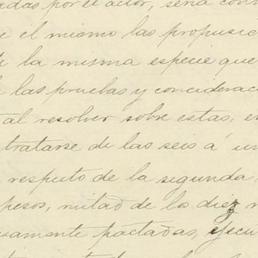 por el actor, sería
e el mismo las proposicio
de la misma especie que
las pruebas y consideracio
al resolver sobre estas, es
tratarse de las seis á un
respeto de la segunda
pesos, mitad de los diez m
uamente pactadas, ejecu